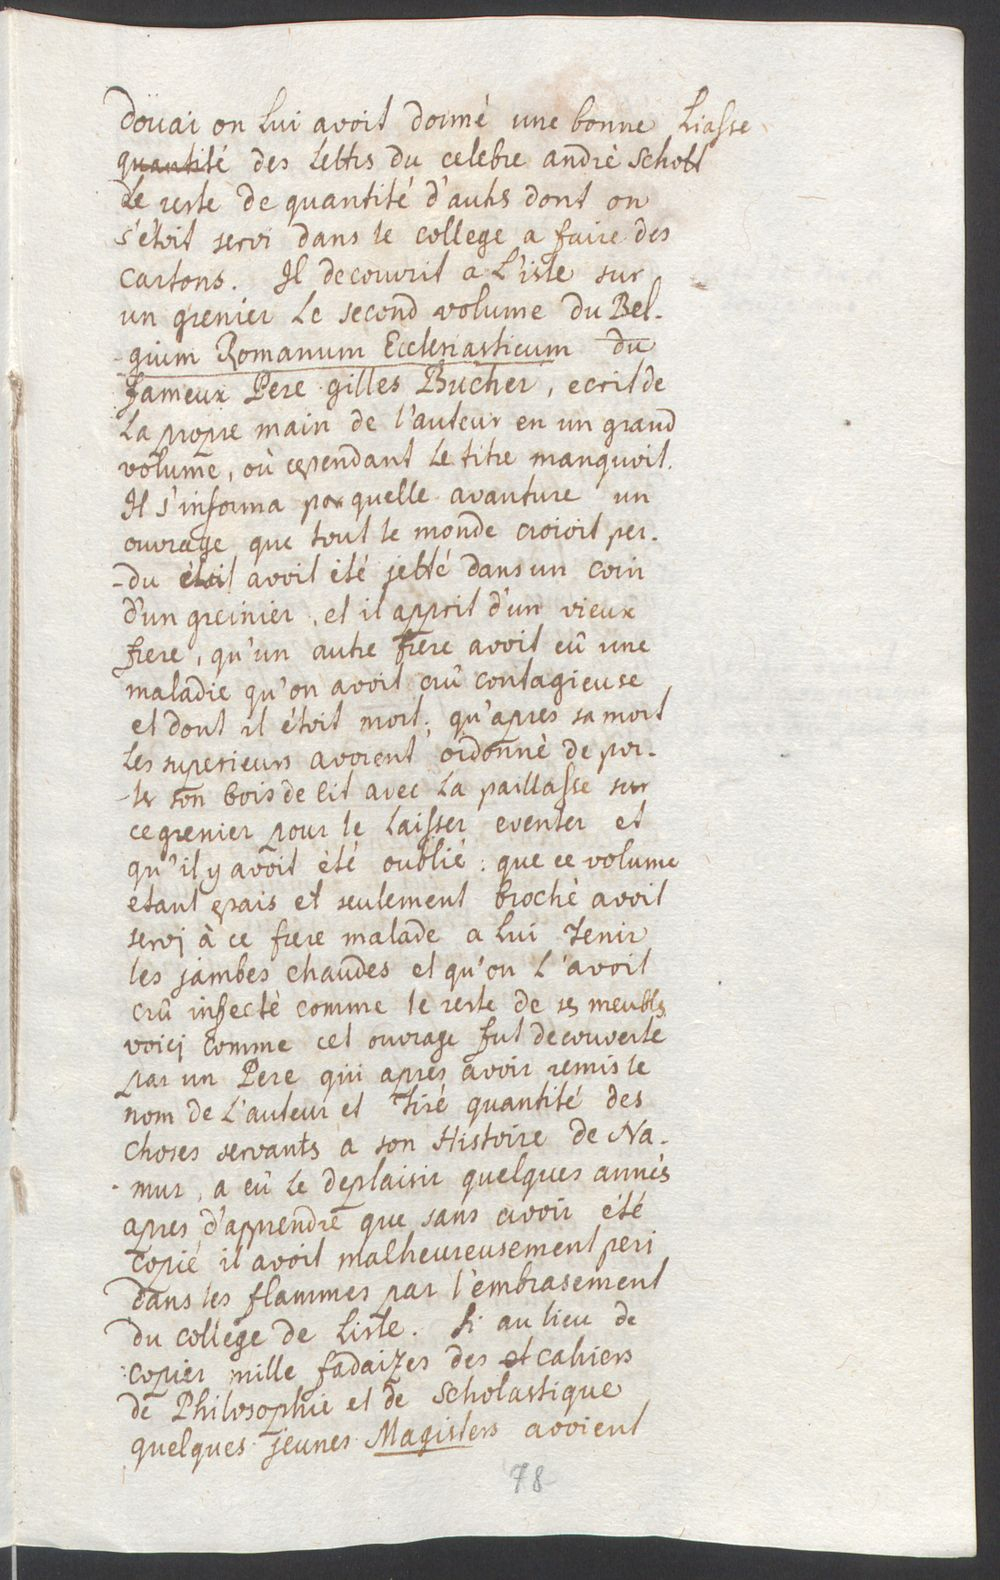 Doüai on Lui avoit donné une bonne Liasse
quantité des Lettrs du celebre andrè Schott
Le reste de quantité d'autrs dont on
s'étoit servi dans le college a faire des
cartons. Il decouvrit a L'isle sur
un grenier Le second volume du Bel-
-gium Romanum Ecclesiasticum du
fameux Pere gilles Bucher, ecrit de
La propre main de l'auteur en un grand
volume, où cependant Le titre manquoit.
Il s'informa par quelle avanture un
ouvrage que tout le monde croioit per-
-du étoit avoit été jetté dans un coin
d'un greinier, et il apprit d'un vieux
frere, qu'un autre frere avoit eû une
maladie qu'on avoit crû contagieuse
et dont il étoit mort; qu'apres sa mort
Les superieurs avoient ordonnè de por-
-ter son bois de lit avec La paillasse sur
ce grenier pour le Laisser eventer et
qu'il y avoit été oublié: que ce volume
etant epais et seulement brochè avoit
servi à ce frere malade a Lui Tenir
les jambes chaudes et qu'on L'avoit
crû infectè comme le reste de ses meubls
voici comme cet ouvrage fut decouverte
par un Pere qui apres avoir remis le
nom de L'auteur et Tiré quantité des
choses servants a son Histoire de Na-
-mur, a eû Le deplaisir quelques annés
apres d'apprendre que sans avoir été
copié il avoit malheureusement peri
dans les flammes par l'embrasement
du college de Lisle. Si au lieu de
copier mille fadaizes des et cahiers
de Philosophie et de Scholastique
quelques jeunes Magisters avoient
78